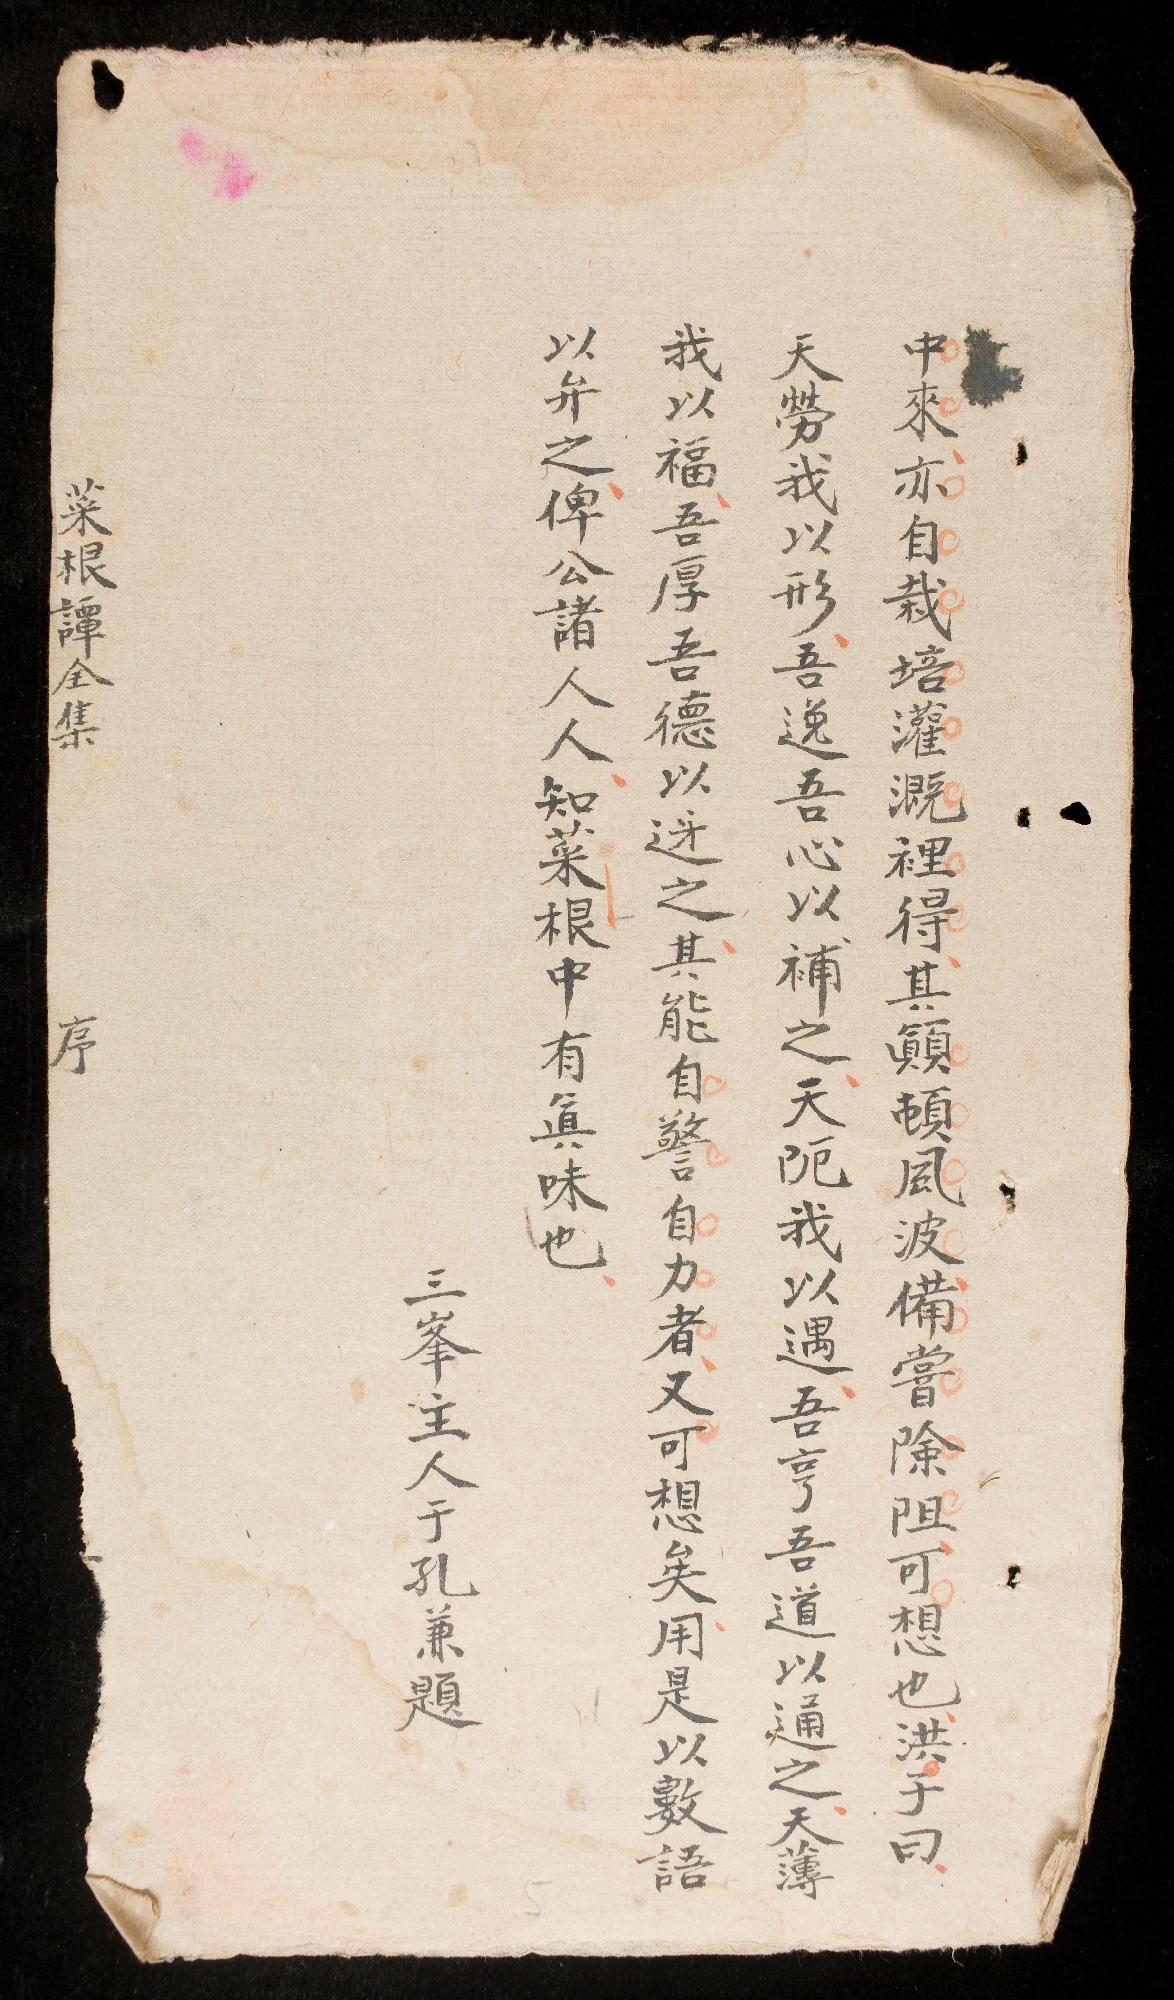 中來亦自栽培灌溉裡得其顛頓風波備嘗險阻可想也洪子曰
天勞我以形吾逸吾心以補之天阨我以遇吾亨吾道以通之天薄
我以福吾厚吾德以迓之其能自警自力者又可想矣用是以數語
以弁之俾公諸人人知菜根中有眞味也
三峯主人于孔兼題
菜根譚全集
序
一
5